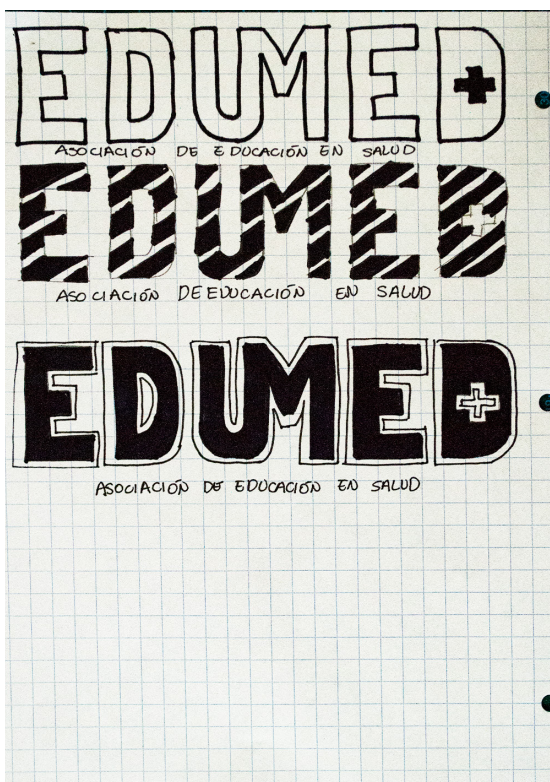 EDUMED
ASOCIACIÓN DE EDUCACIÓN EN SALUD
EDUMED
ASOCIACIÓN DE EDUCACIÓN EN SALUD
EDUMED
ASOCIACIÓN DE EDUCACIÓN EN SALUD